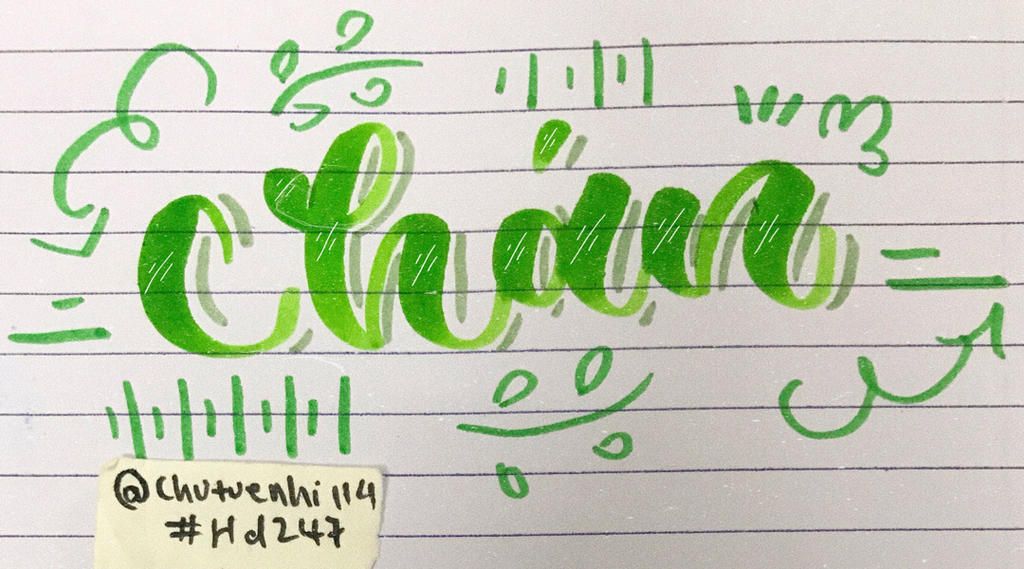 chán
@chutuenhi114
#Hd247